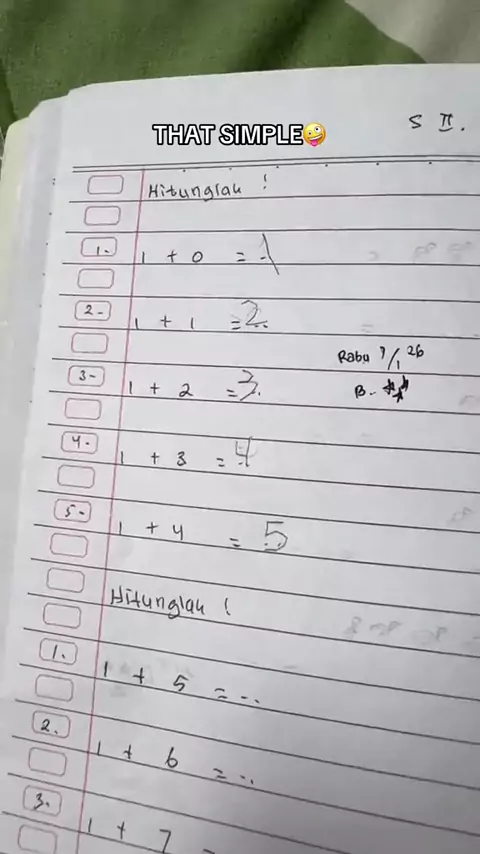 THAT SIMPLE🤪
S II.
Hitunglah !
1. 1 + 0 = 1
2. 1 + 1 = 2
Rabu 7/1 26
3. 1 + 2 = 3
B.
4. 1 + 3 = 4
5. 1 + 4 = 5
Hitunglah !
1. 1 + 5 = ...
2. 1 + 6 = ...
3. 1 + 7 =